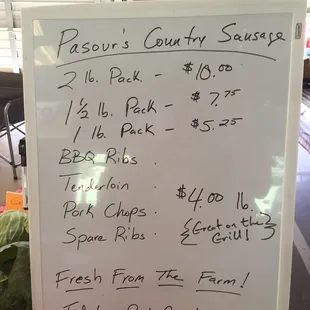 Pasour's Country Sausage
2 lb. Pack - $10.00
1 1/2 lb. Pack - $7.75
1 lb. Pack - $5.25
BBQ Ribs .
Tenderloin .
Pork Chops . $4.00 lb.
Spare Ribs . {Great on the Grill!}
Fresh From The Farm!